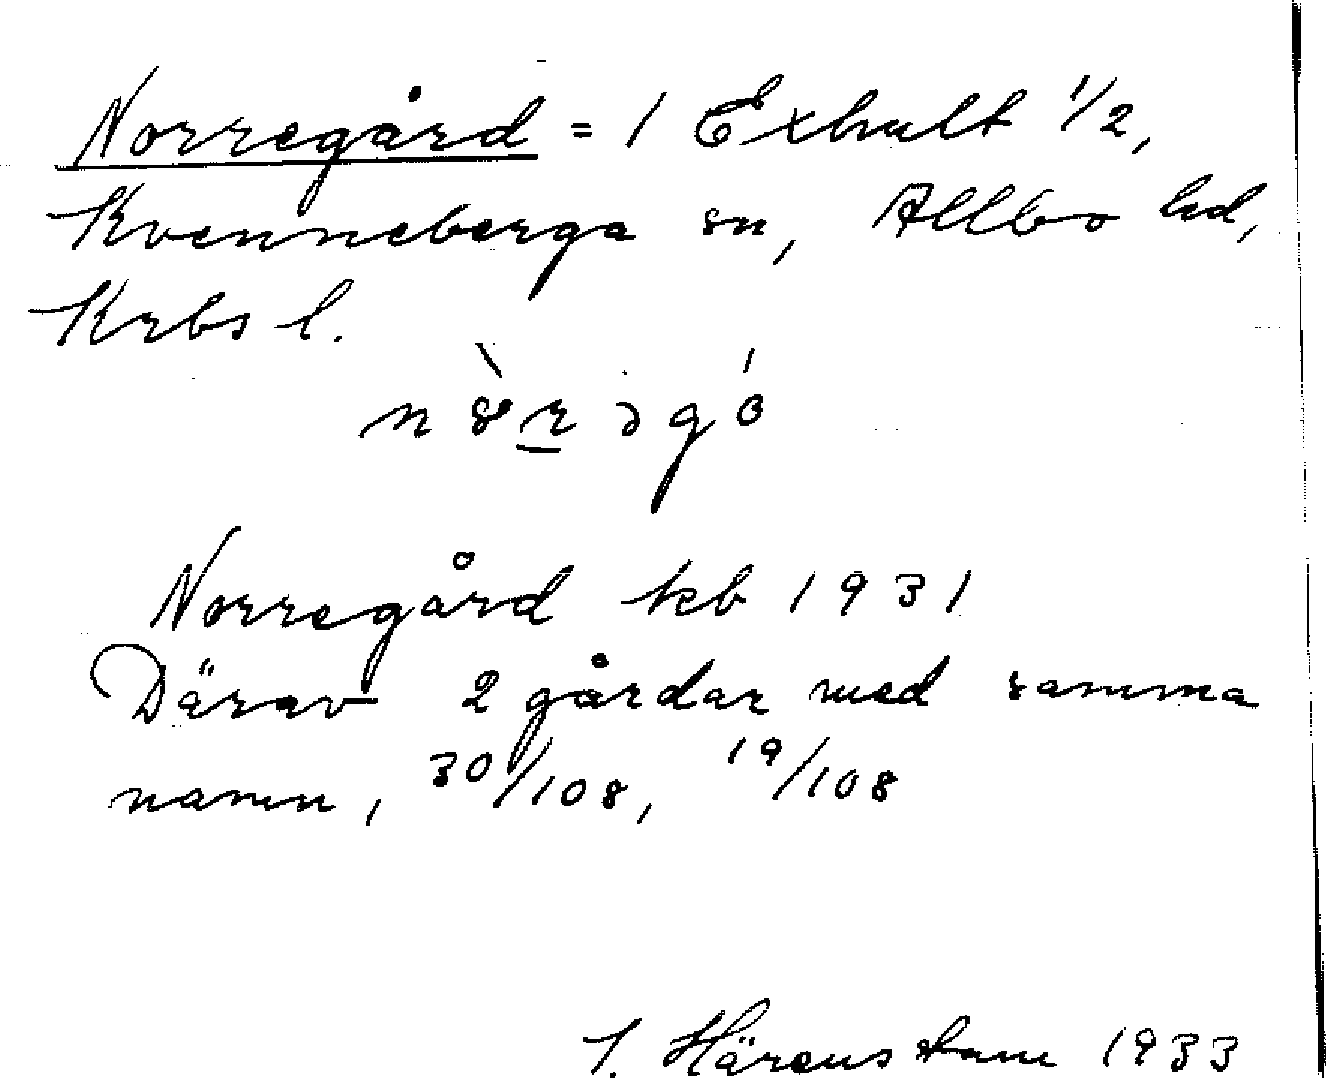 Norregård = 1 Exhult 1/2,
Kvenneberga sn, Allbo hd,
Krbs l.
Norregård kb 1931
Därav 2 gårdar med samma
namn, 30/108, 19/108
Härenstam 1933